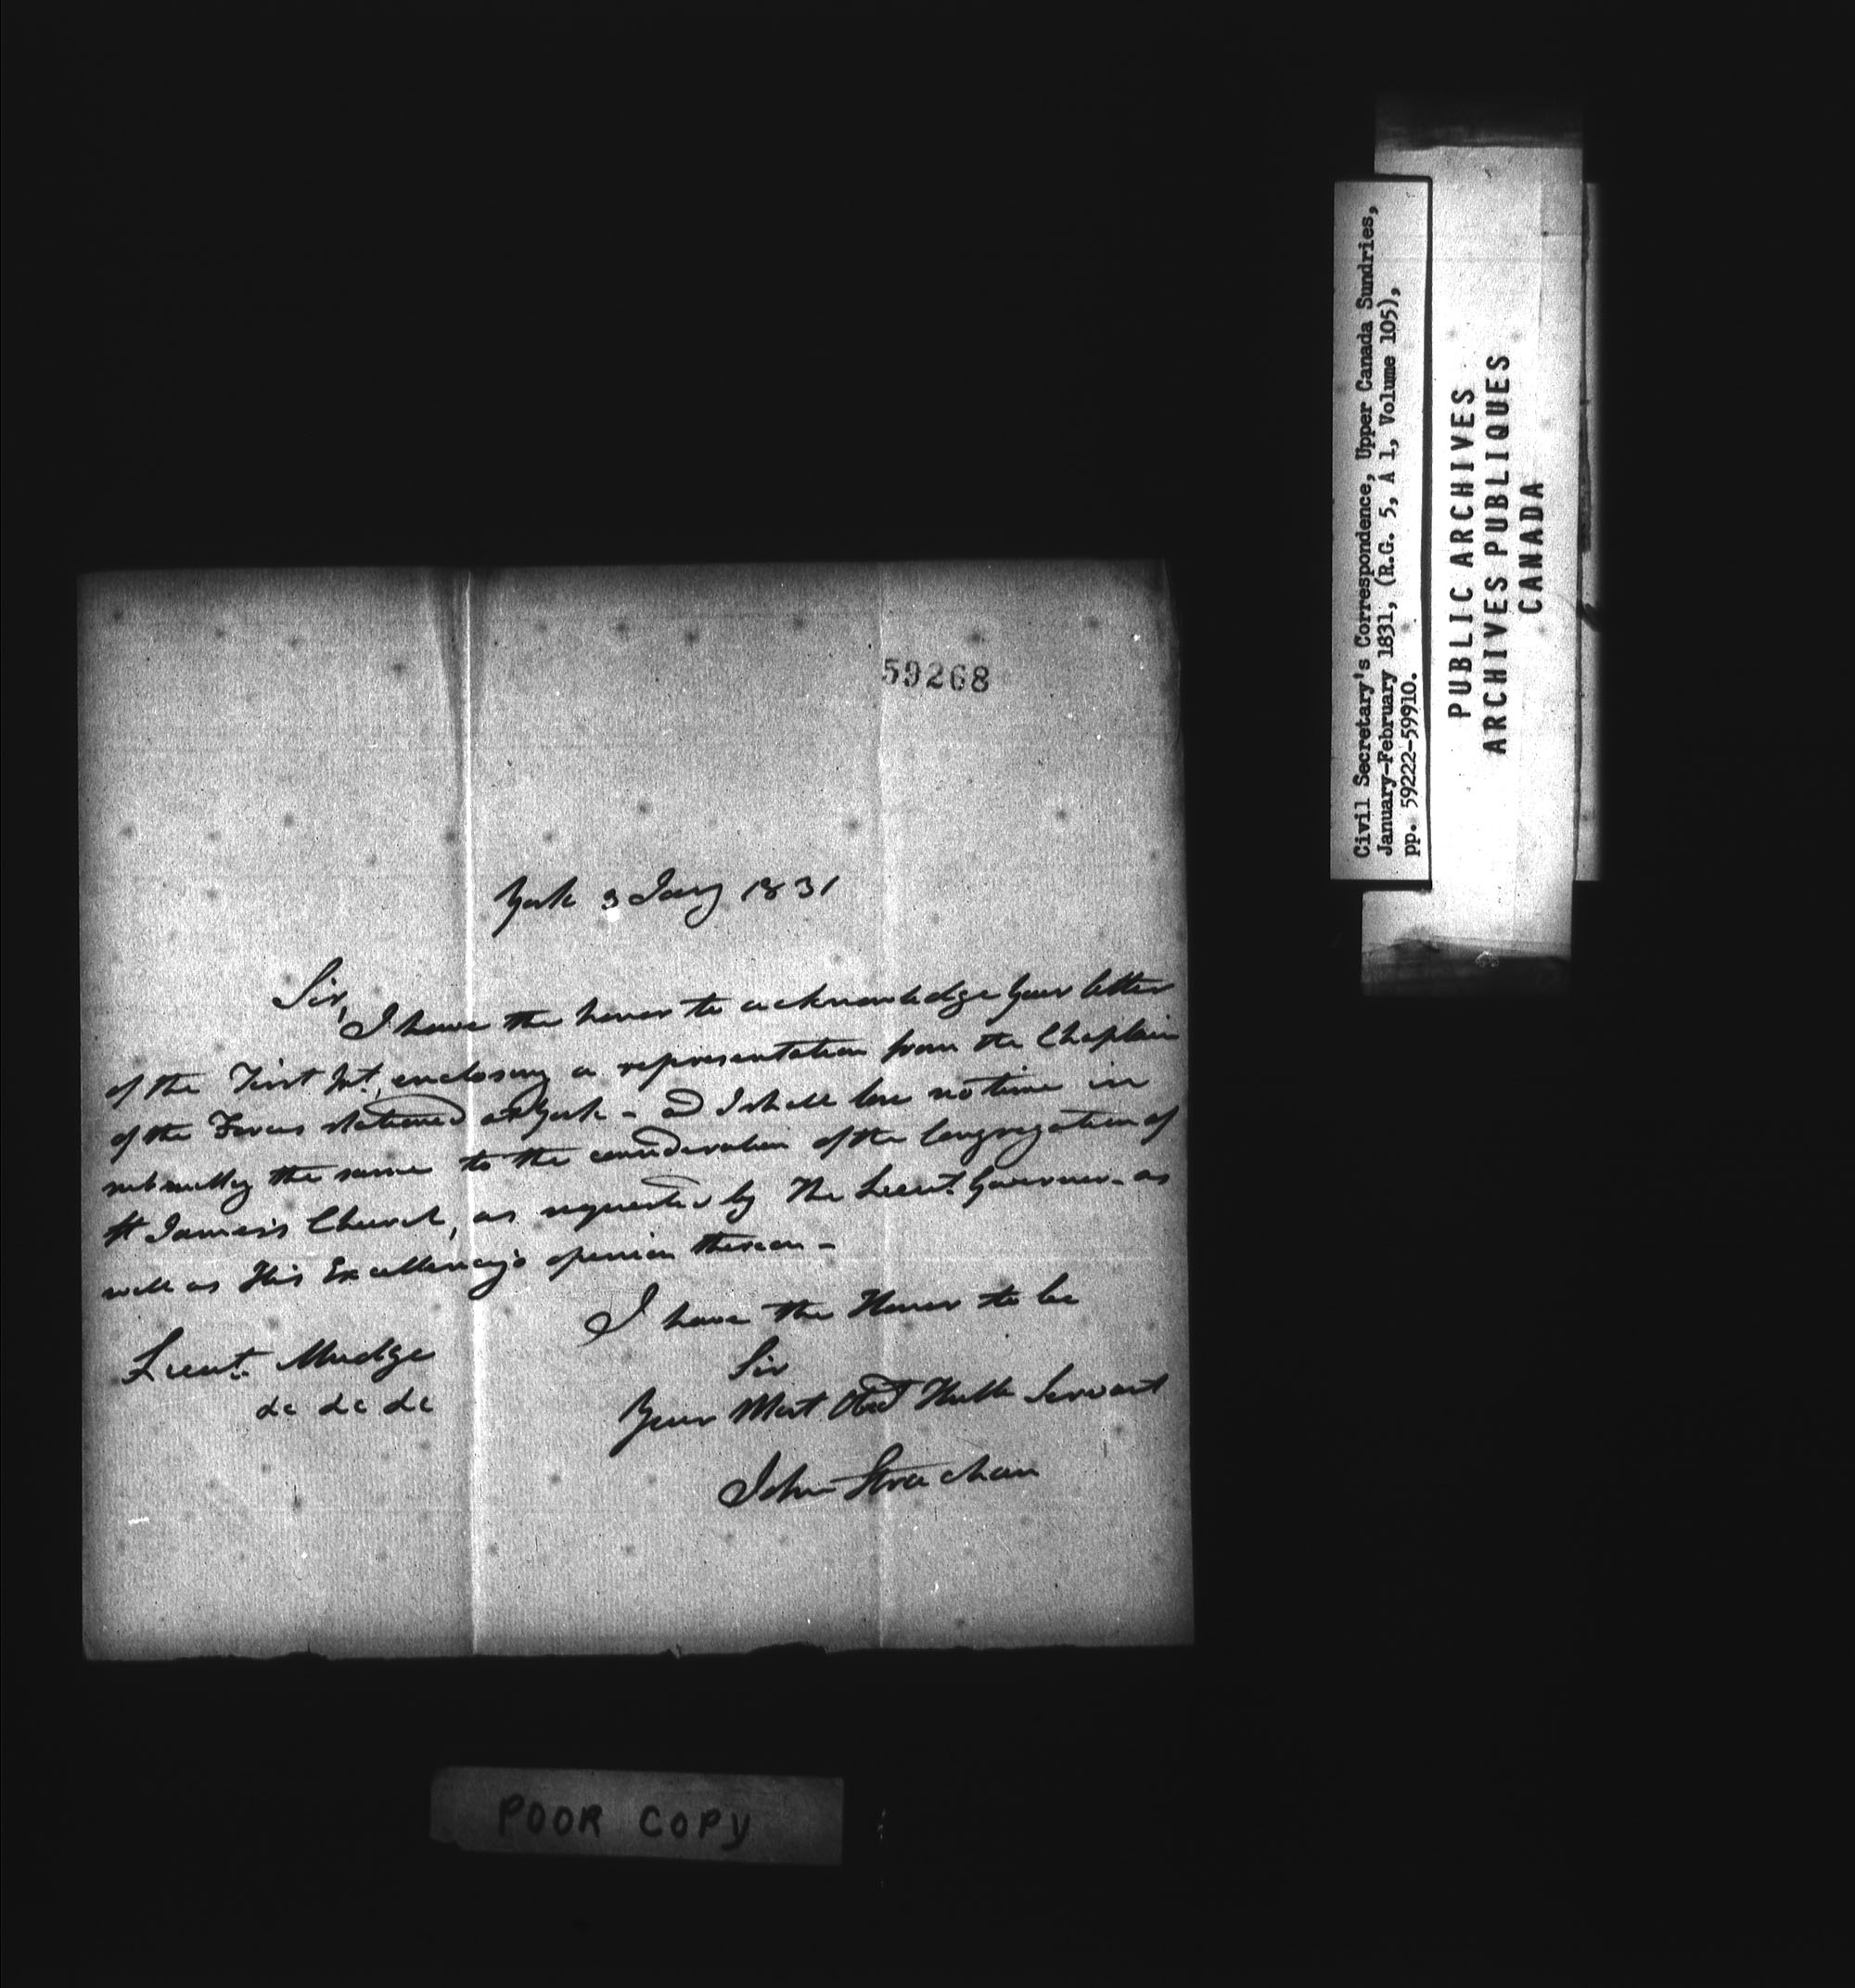 59268
York 3 Jany 1831
Sir,
I have the honor to acknowledge your letter
of the First Int, enclosing a representation from the Chaplain
of the Forces stationed at York - and I shall lose no time in
submitting the same to the consideration of the Congregation of
St James's Church, as requested by The Lieut. Governor - as
well as His Excellency's opinion thereon -
I have the Honor to be
Sir
Your Most Obdt Huble Servant
John Strachan
Lieut. Mudge
&c &c &c
POOR COPY
Civil Secretary's Correspondence, Upper Canada Sundries,
January-February 1831, (R.G. 5, A 1, Volume 105),
pp. 59222-59910.
PUBLIC ARCHIVES
ARCHIVES PUBLIQUES
CANADA